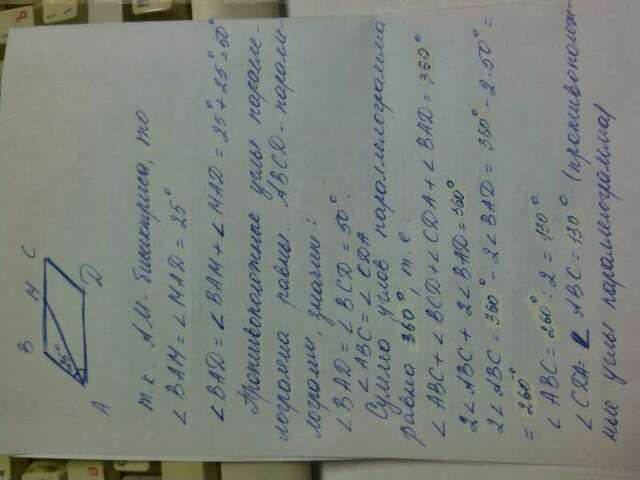 B M C
25°
A D
т.к. AM - биссектриса, то
∠BAM = ∠MAD = 25°
∠BAD = ∠BAM + ∠MAD = 25° + 25° = 50°
Противоположные углы паралле-
лограмма равны. ABCD - паралле-
лограмм, значит:
∠BAD = ∠BCD = 50°
∠ABC = ∠CDA
Сумма углов параллелограмма
равна 360°, т.е.
∠ABC + ∠BCD + ∠CDA + ∠BAD = 360°
2∠ABC + 2∠BAD = 360°
2∠ABC = 360° - 2∠BAD = 360° - 2·50° =
= 260°
∠ABC = 260° : 2 = 130°
∠CDA = ∠ABC = 130° (противополож-
ные углы параллелограмма)